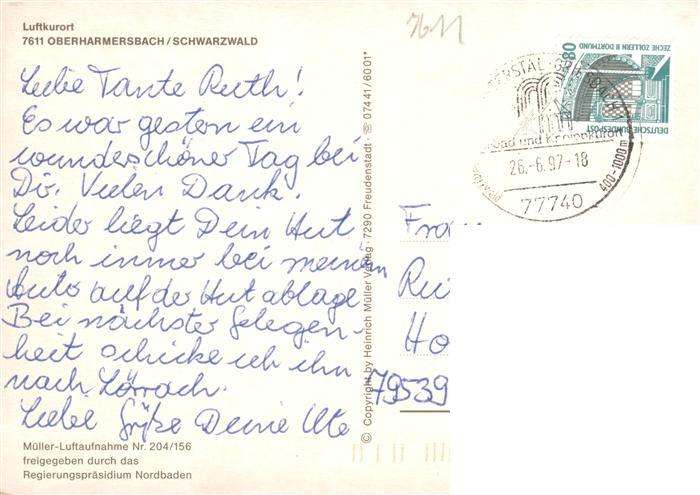 Luftkurort
7611 OBERHARMERSBACH/SCHWARZWALD
7611
Liebe Tante Ruth!
Es war gestern ein
wunderschöner Tag bei
Dir. Vielen Dank.
Leider liegt Dein Hut
noch immer bei meinem
Auto auf der Hutablage
Bei nächster Gelegen-
heit schicke ich ihn
nach Lörrach.
Liebe Grüße Deine Ute
Müller-Luftaufnahme Nr. 204/156
freigegeben durch das
Regierungspräsidium Nordbaden
© Copyright by Heinrich Müller Verlag · 7290 Freudenstadt · ☏ 07441/6001*
80
ZECHE ZOLLERN II DORTMUND
DEUTSCHE BUNDESPOST
Bad und Kneippkurort
26.-6.97-18
400-1000m
77740
79539